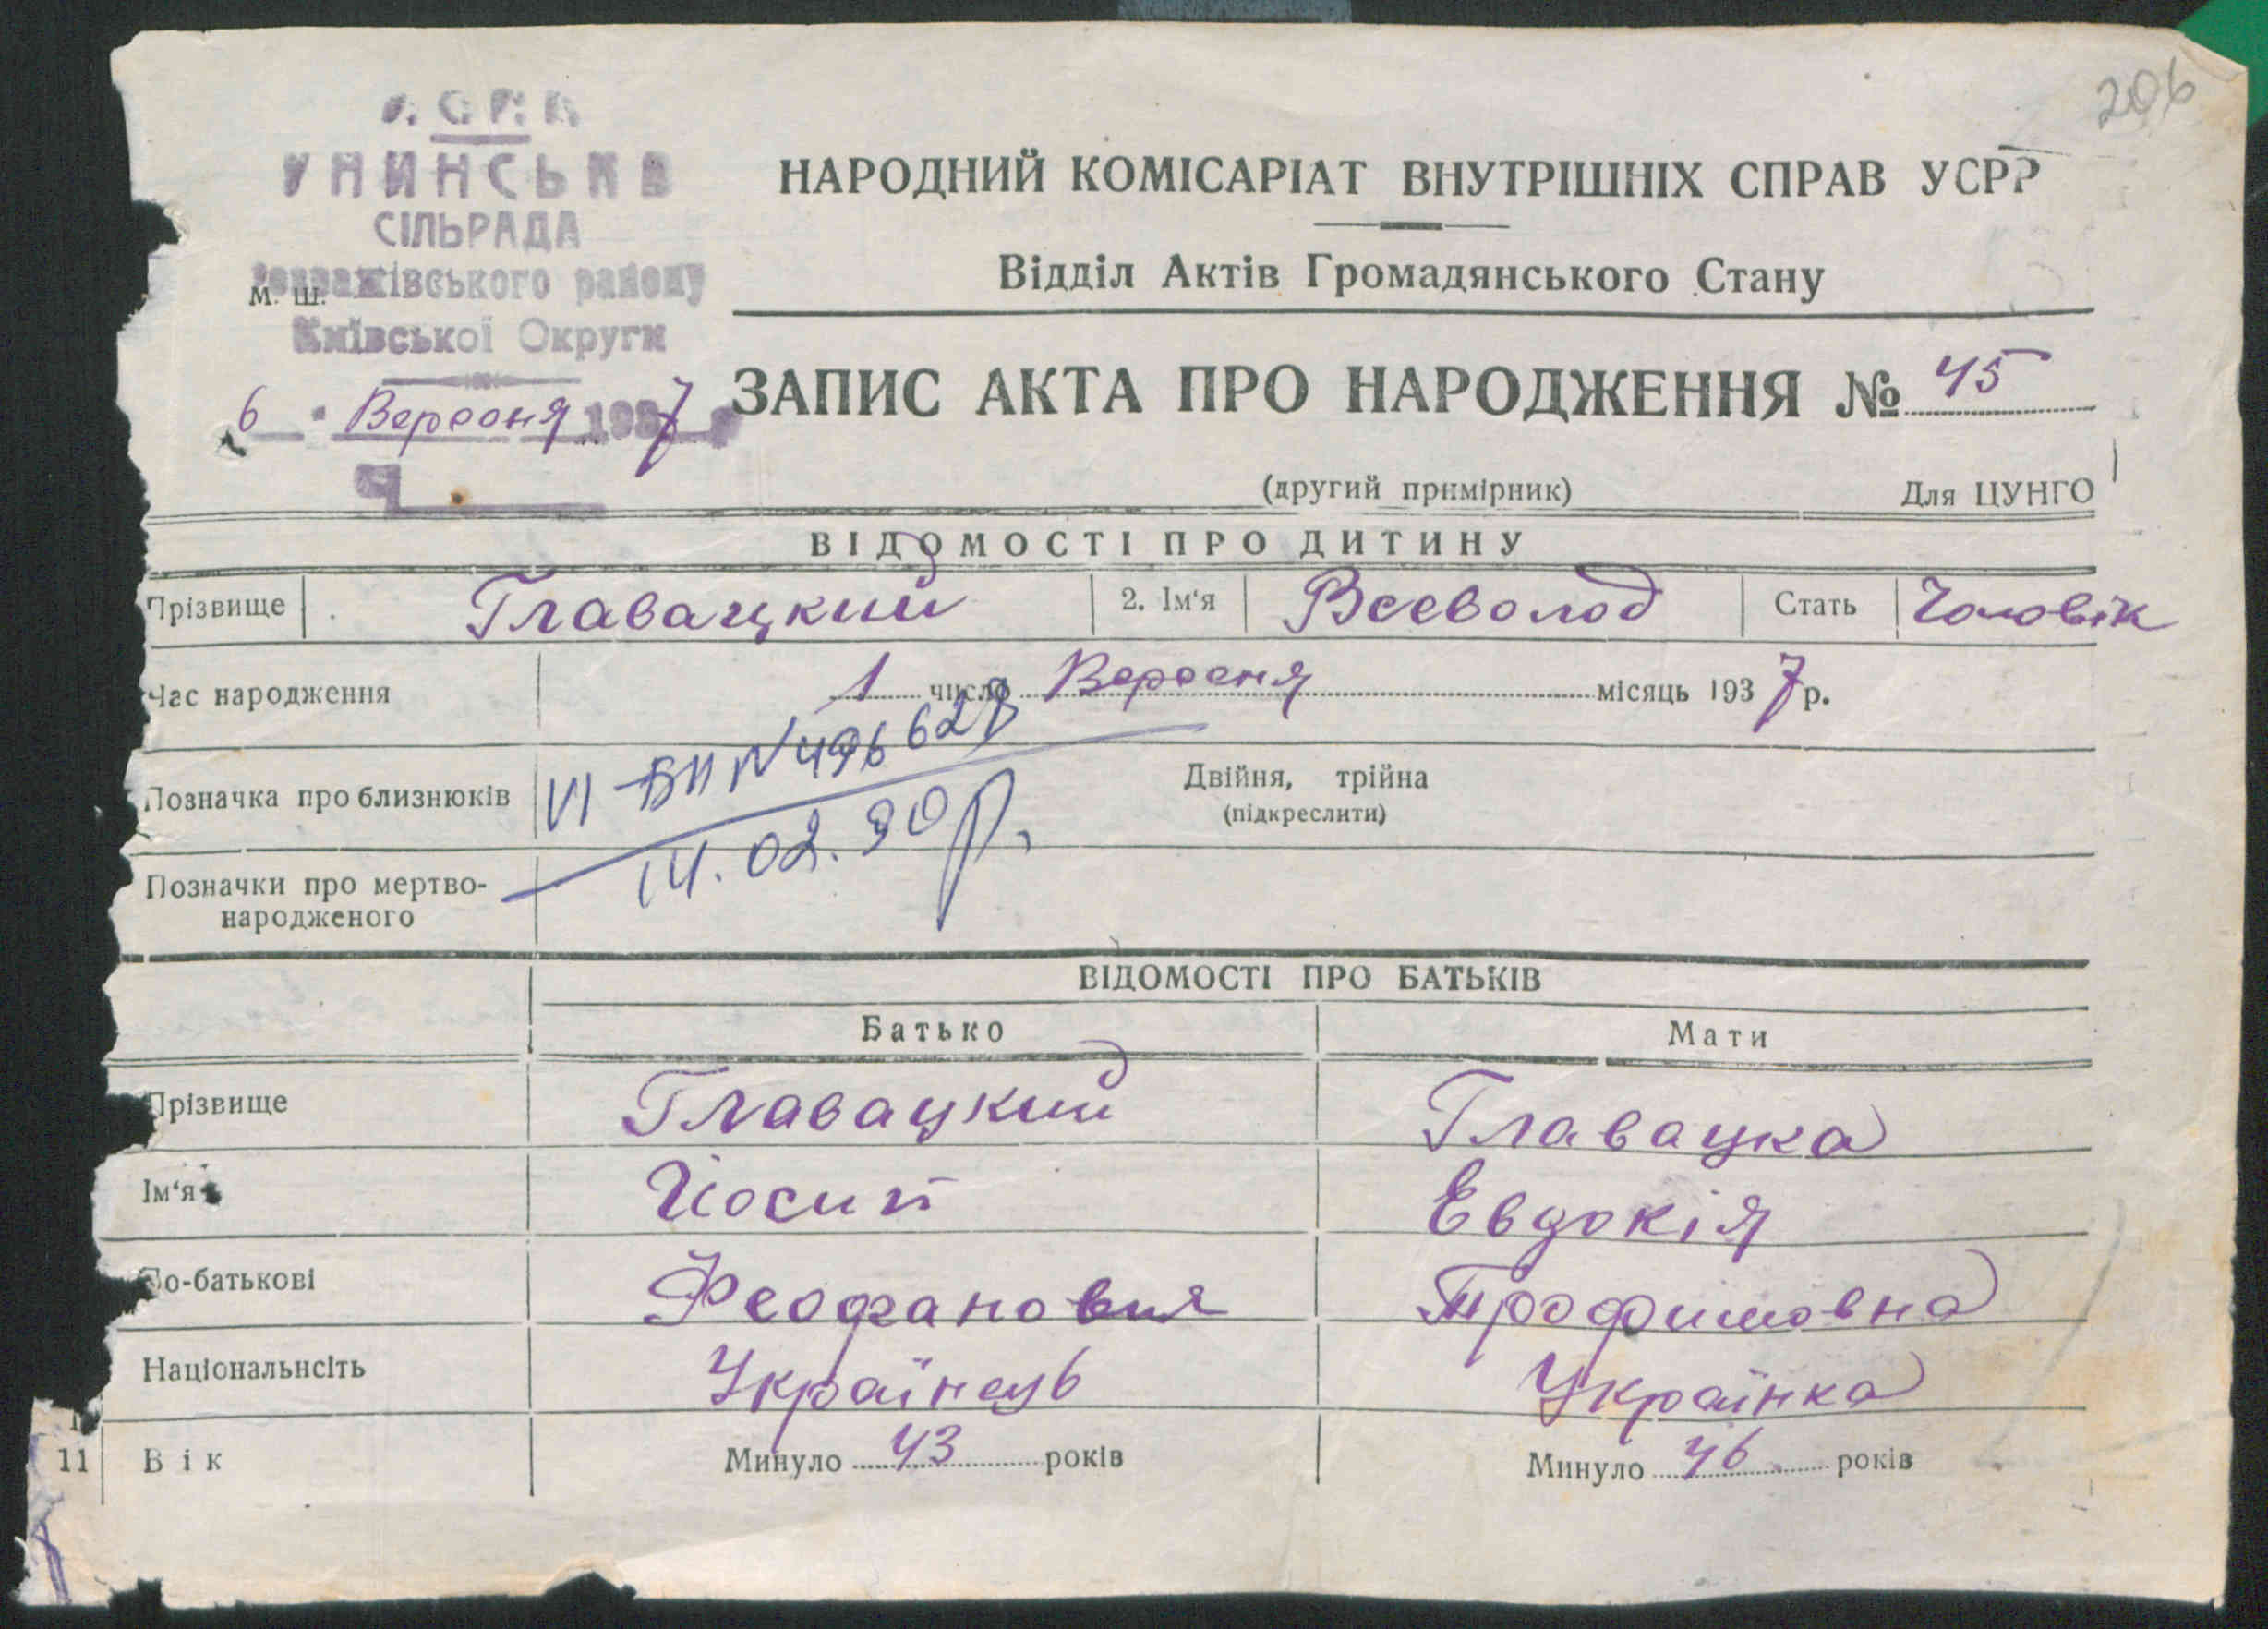 206
У.С.Р.Р.
УНИНСЬКА
СІЛЬРАДА
району
Київської Округи
М. Ш.
6 Вересня 1937
Ч.
НАРОДНИЙ КОМІСАРІАТ ВНУТРІШНІХ СПРАВ УСРР
Відділ Актів Громадянського Стану
ЗАПИС АКТА ПРО НАРОДЖЕННЯ № 45
(другий примірник) Для ЦУНГО
ВІДОМОСТІ ПРО ДИТИНУ
Прізвище Главацкий 2. Ім‘я Всеволод Стать Чоловік
Час народження 1 число Вересня місяць 1937 р.
Позначка про близнюків Двійня, трійна
(підкреслити)
VI-БК N 496628
14.02.90р.
Позначки про мертво-
народженого
ВІДОМОСТІ ПРО БАТЬКІВ
Батько Мати
Прізвище Главацкий Главацка
Ім‘я Йосип Евдокія
По-батькові Феофанович Трофимовна
Національнсіть Українець Українка
11 Вік Минуло 43 років Минуло 46 років